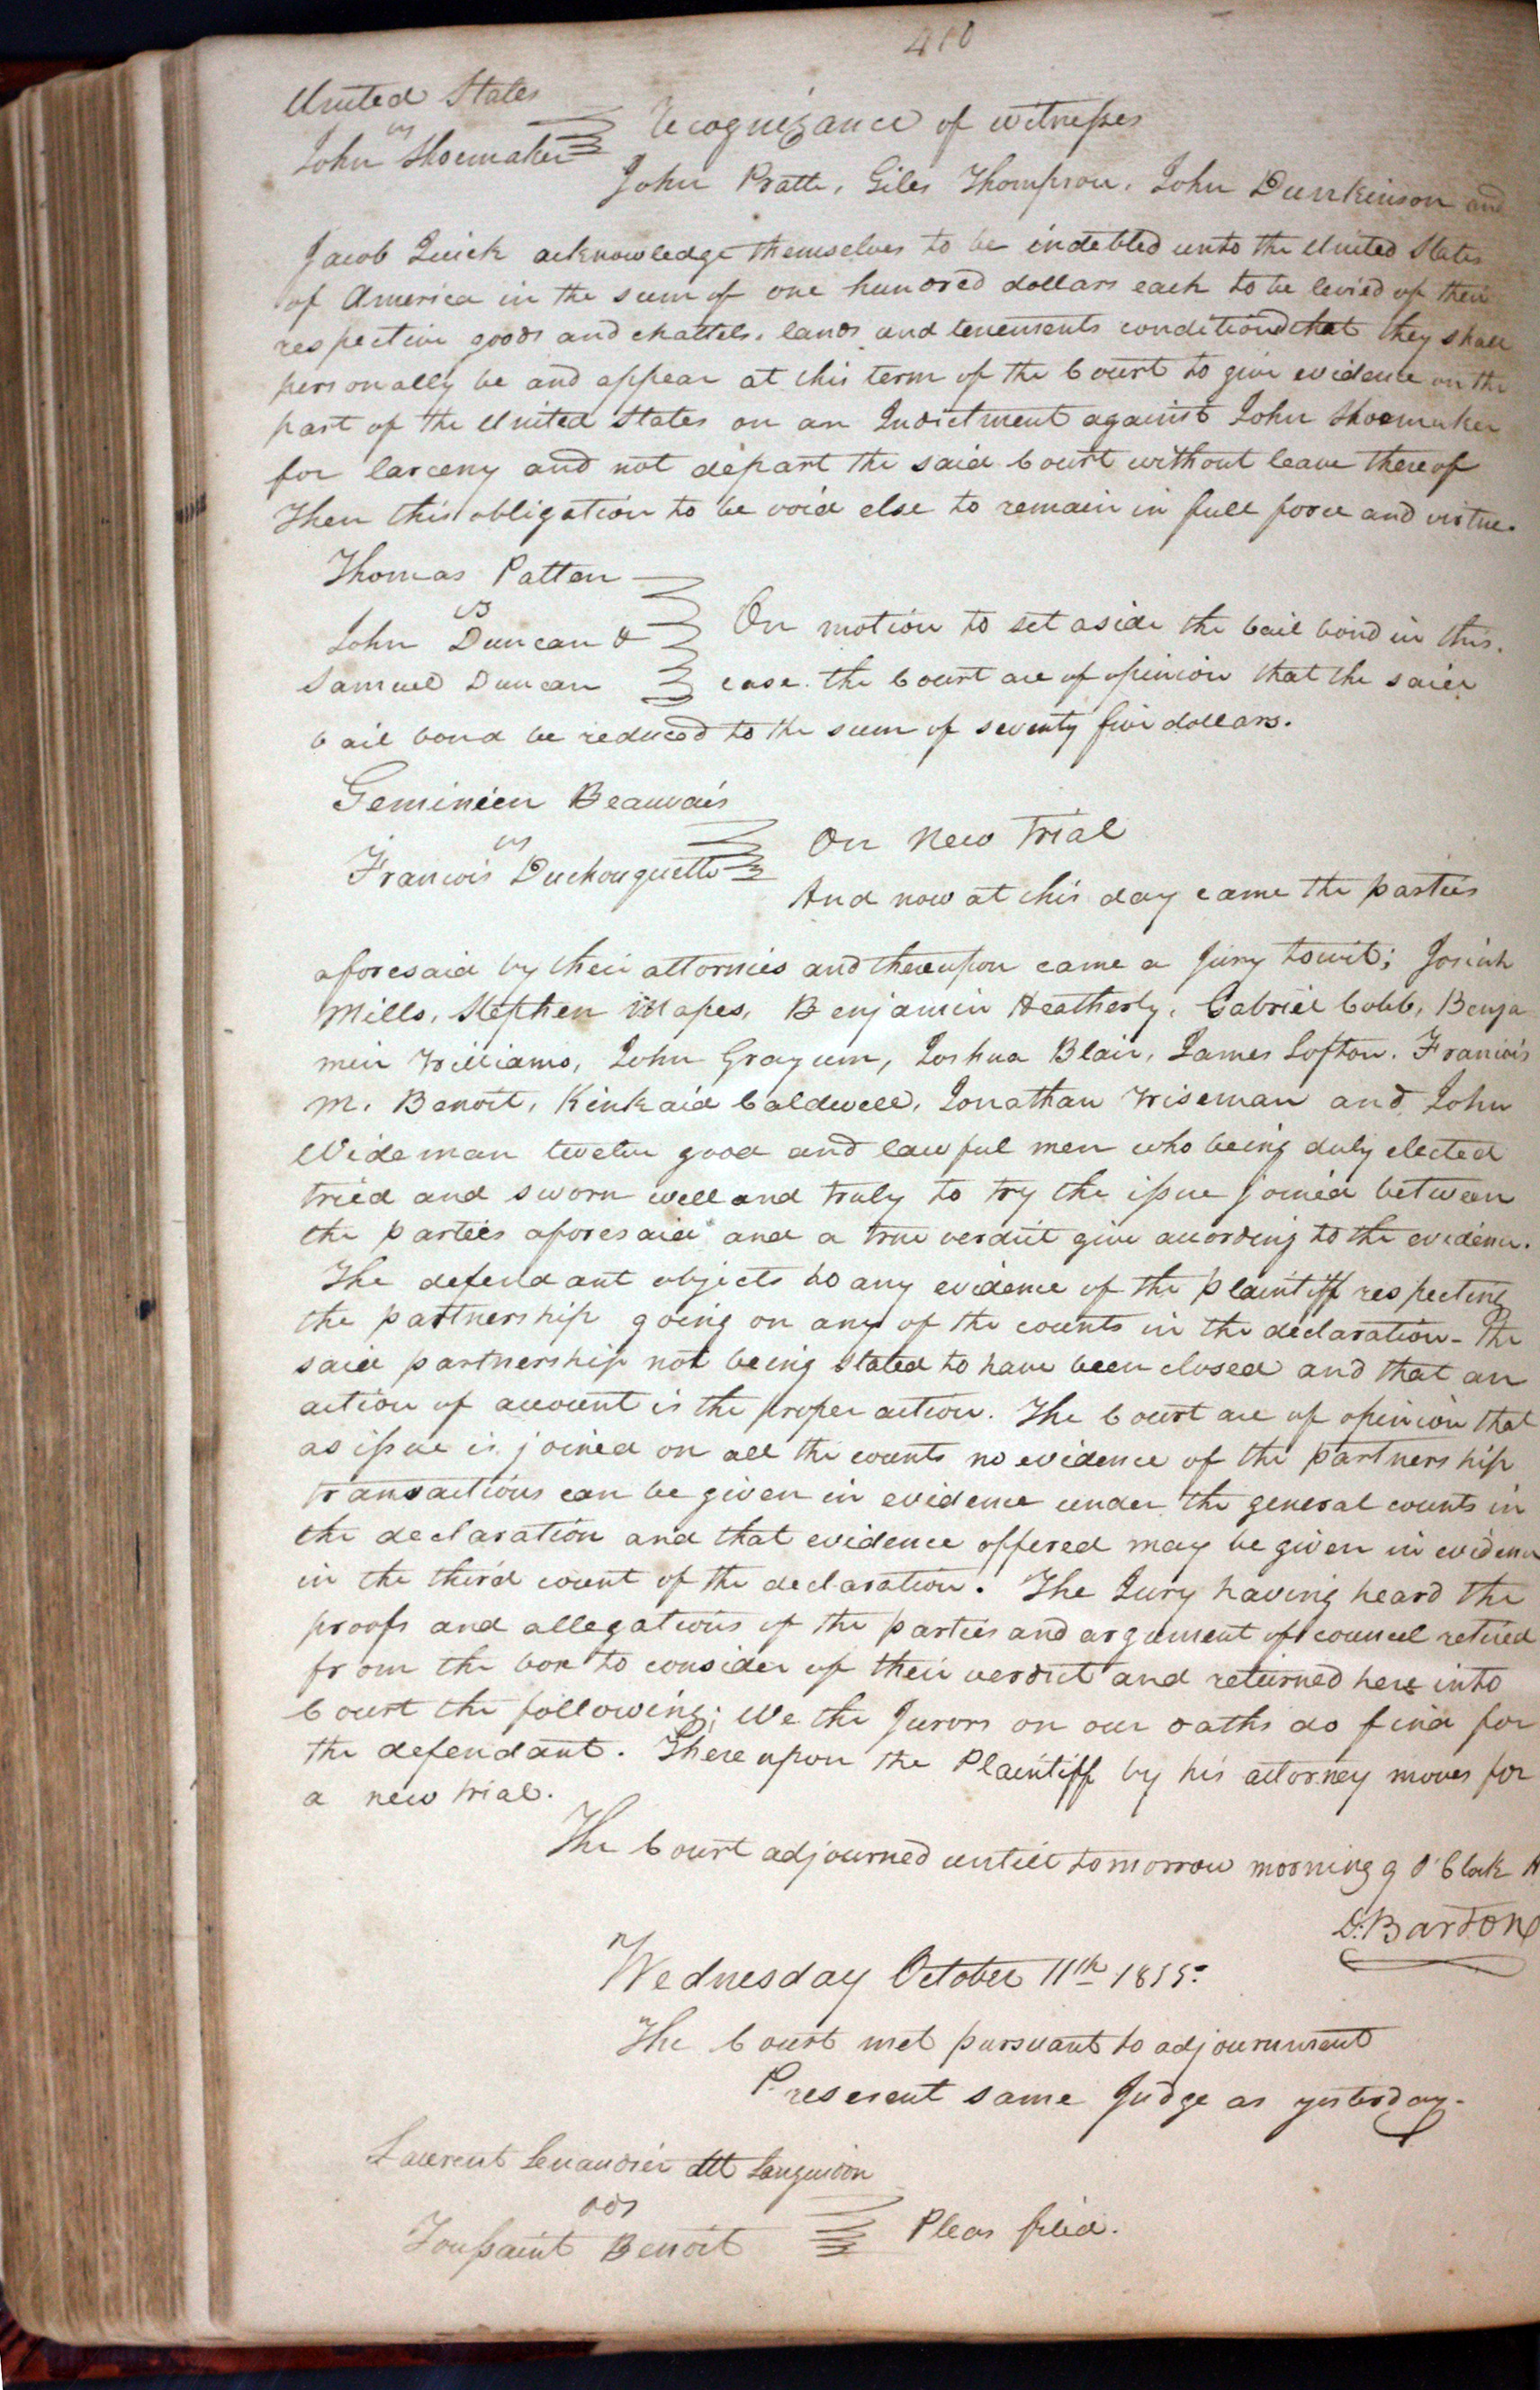 410
United States
vs
John Shoemaker
Recognizance of witnesses
John Pratte, Giles Thompson, John Dunkinson and
Jacob Quick acknowledge themselves to be indebted unto the United States
of America in the sum of one hundred dollars each to be levied of their
respective goods and chattels, lands and tenements conditiond that they shall
personally be and appear at this term of the Court to give evidence on the
part of the United States on an Indictment against John Shoemaker
for larceny and not depart the said Court without leave thereof
Then this obligation to be void else to remain in full force and virtue.
Thomas Patten
vs
John Duncan &
Samuel Duncan
On motion to set aside the bail bond in this
case. the Court are of opinion that the said
bail bond be reduced to the sum of seventy five dollars.
Geminien Beauvais
vs
Francois Duchouquette
On New Trial
And now at this day came the parties
aforesaid by their attornies and thereupon came a Jury towit; Josiah
Mills, Stephen Mapes, Benjamin Heatherly, Gabriel Cobb, Benja
min Williams, John Grayum, Joshua Blair, James Lofton. Francois
M. Benoit, Kinkaid Caldwell, Jonathan Wiseman and John
Wideman twelve good and lawful men who being duly elected
tried and sworn well and truly to try the issue joined between
the parties aforesaid and a true verdict give according to the evidence.
The defendant objects to any evidence of the plaintiff respecting
the partnership going on any of the counts in the declaration - the
said partnership not being stated to have been closed and that an
action of account is the proper action. The Court are of opinion that
as issue is joined on all the counts no evidence of the partnership
transactions can be given in evidence under the general counts in
the declaration and that evidence offered may be given in evidence
in the third count of the declaration. The Jury having heard the
proofs and allegations of the parties and argument of councel retired
from the box to consider of their verdict and returned here into
Court the following; We the Jurors on our oaths do find for
the defendant. Thereupon the Plaintiff by his attorney moves for
a new trial.
The Court adjourned untill tomorrow morning 9 O'Clock
D. Barton
Wednesday October 11th 1815.
The Court met pursuant to adjournment
Presesent same Judge as yesterday.
Laurent dit
ads
Toussaint Benoit
Pleas filed.